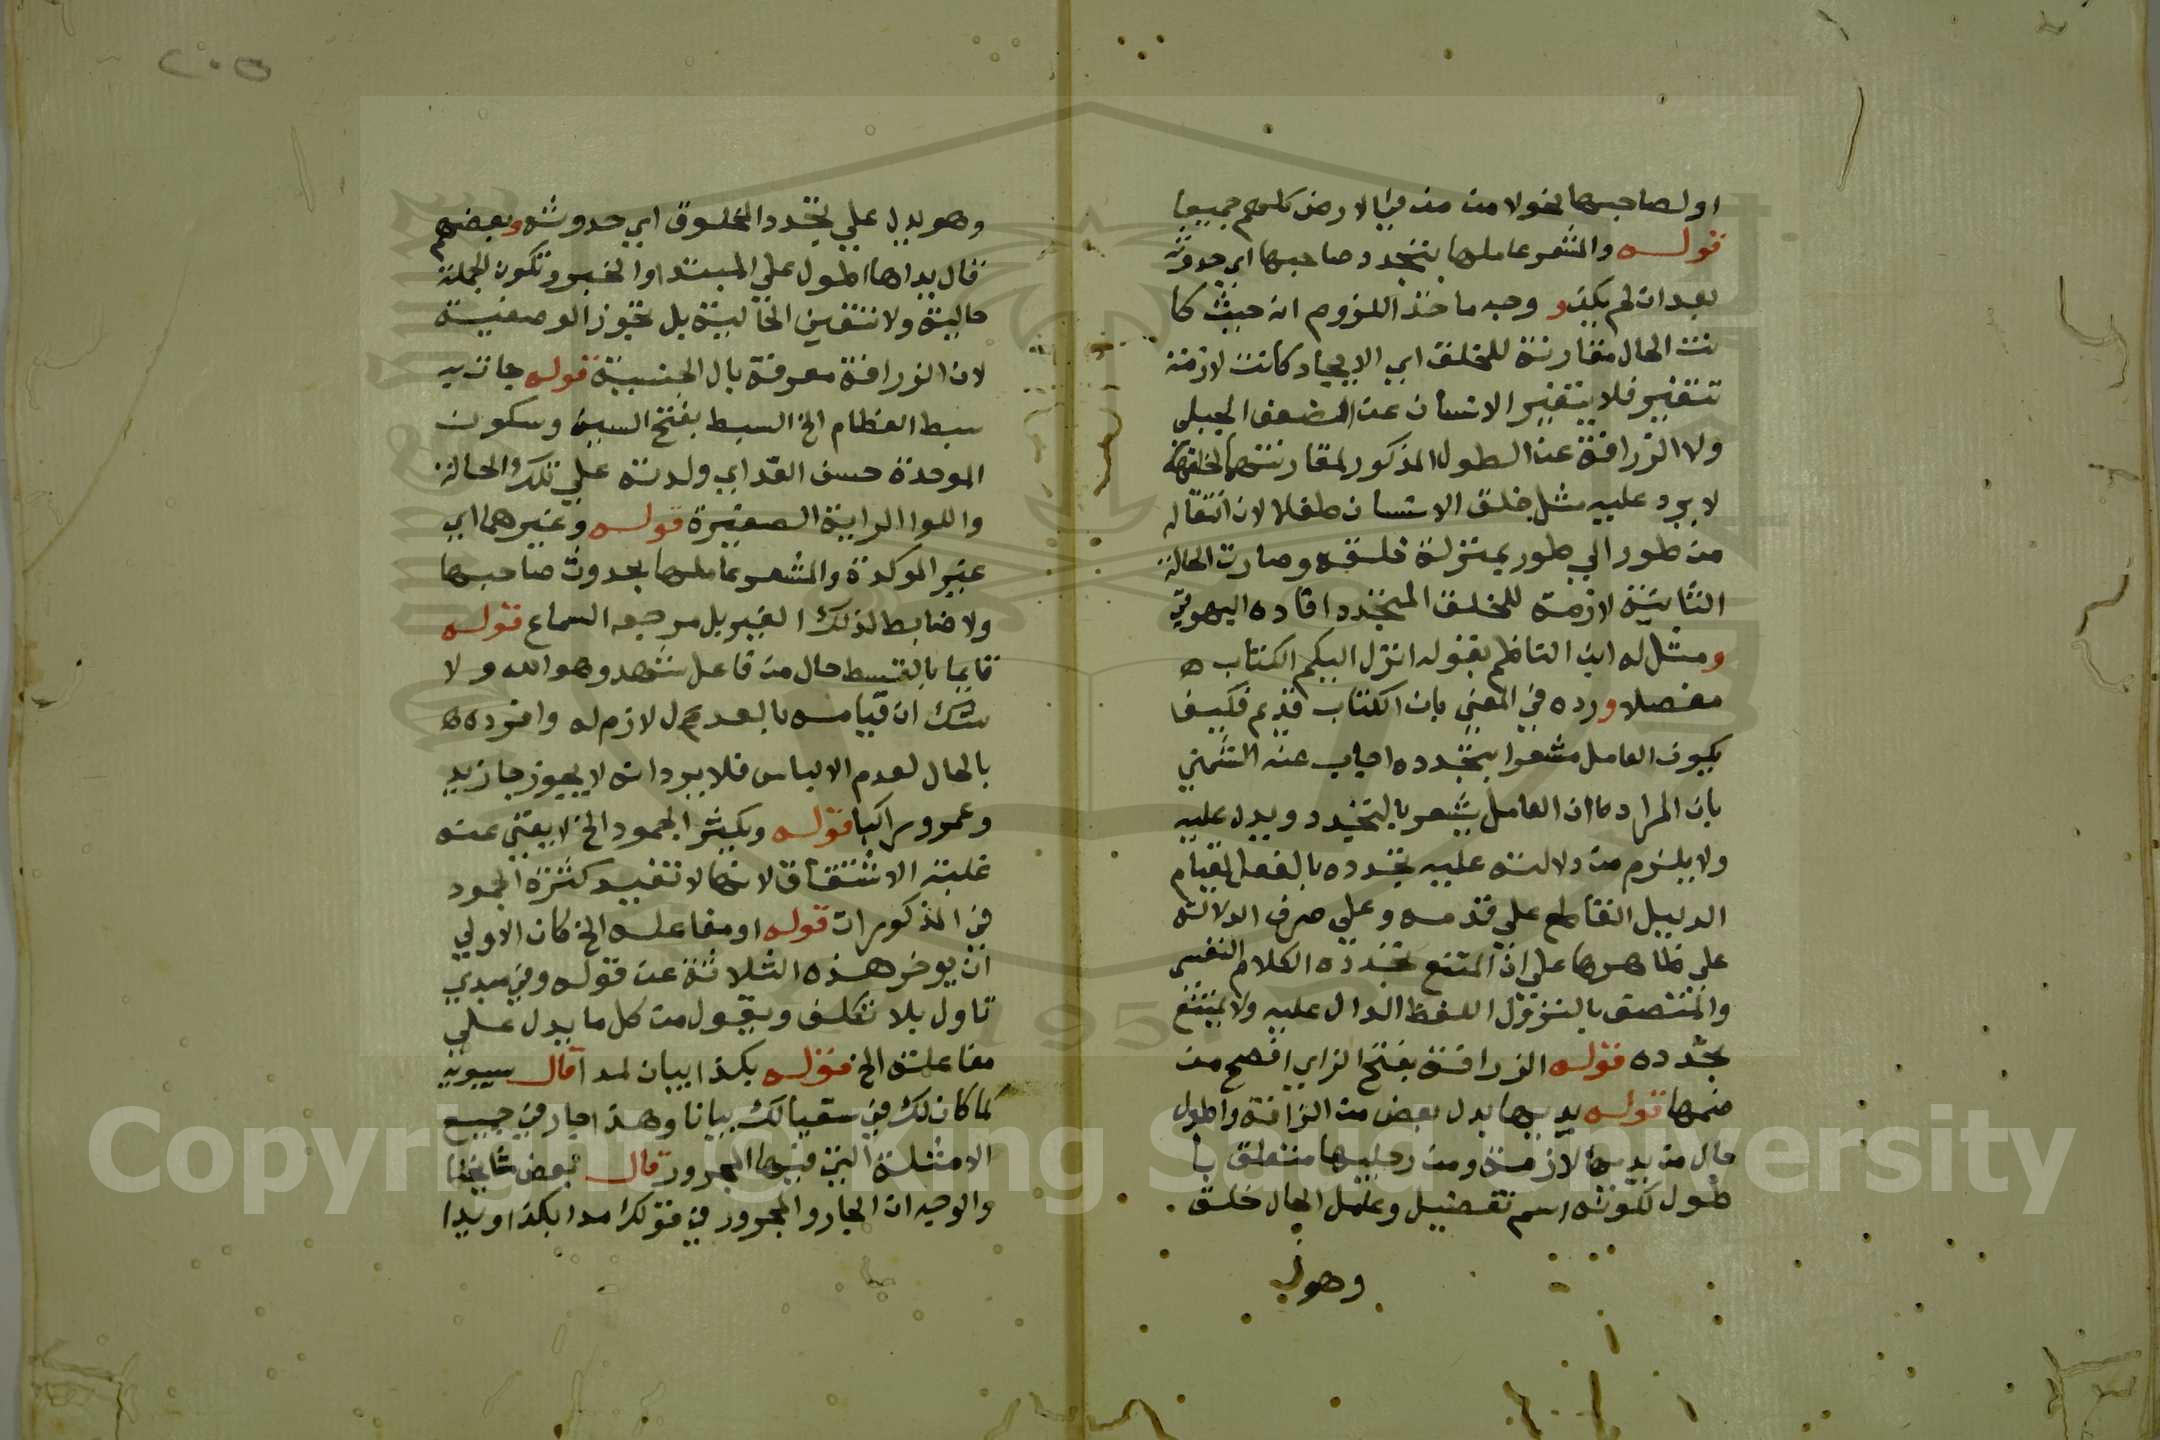 او لصاحبها نحو لامن من في الارض كلهم جميعا
قوله والمشعر عاملها بتجدد صاحبها اي حدوثه
بعد ان لم يكن و وجه ماخذ اللزوم انه حيث كا
نت الحال مقارنة للخلق اي الايجاد كانت لازمة
تتغير فلا يتغير الانسان عن الضعف الجبلي
ولا الزرافة عن الطول المذكور لمقارنتهما لخلقهما
لا يرد عليه مثل خلق الانسان طفلا لان انتقاله
من طور الي طور بمنزلة خلقه وصارت الحالة
الثانية لازمة للخلق المتجدد افاده اليهوتي
ومثل له ابن الناظم بقوله انزل اليكم الكتاب ه
مفصلا ورده في المغني بان الكتاب قديم فكيف
يكون العامل مشعرا بتجدده اجاب عنه الشمني
بان المراد ان العامل يشعر بالتجدد ويدل عليه
ولا يلزم من دلالته عليه تجدده بالفعل لقيام
الدليل القاطع علي قدمه وعلي صرف الدلالة
علي ظاهرها علي ان الممتنع تجدده الكلام النفسي
والمتصف بالنزول اللفظ الدال عليه ولا يمتنع
تجدده قوله الزرافة بفتح الزاي افصح من
ضمها قوله يديها بدل بعض من الزرافة واطول
حال من يديها لازمة ومن رجليها متعلق با
طول لكونه اسم تفضيل وعامل الحال خلق
وهو
٢٠٥
وهو يدل علي تجدد المخلوق اي حدوثه وبعضهم
قال يداها اطول علي المبتدا والخبر وتكون الجملة
حالية ولا تتعين الحالية بل تجوز الوصفية
لان الزرافة معرفة بال الجنسية قوله جات به
سبط العظام الخ السبط بفتح السين وسكون
الموحدة حسن القد اي ولدته علي تلك الحالة
واللوا الراية الصغيرة قوله وغيرهما اي
غير الموكدة والمشعر عاملها بحدوث صاحبها
ولا ضابط لذلك الغير بل مرجعه السماع قوله
قايما بالقسط حال من فاعل شهد وهو الله ولا
شك ان قيامه بالعدل لازم له وافرده
بالحال لعدم الالباس فلا يرد انه لا يجوز جا زيد
وعمرو راكبا قوله ويكثر الجمود الخ لا يغني عنه
غلبة الاشتقاق لانها لا تفيد كثرة الجمود
في المذكورات قوله او مفاعله الخ كان الاولي
ان يوخر هذه الثلاثة عن قوله وفي مبدي
تاول بلا تكلف ويقول من كل ما يدل علي
مفاعلة الخ قوله بكذا بيان لمدا قال سيبويه
كما كان لك في سقيا لك بيانا وهذا جار في جميع
الامثلة التي فيها المجرور قال بعض مشايخنا
والوجه ان الجار والمجرور في قولك مدا بكذا ويدا
Copyright © King Saud University
1957